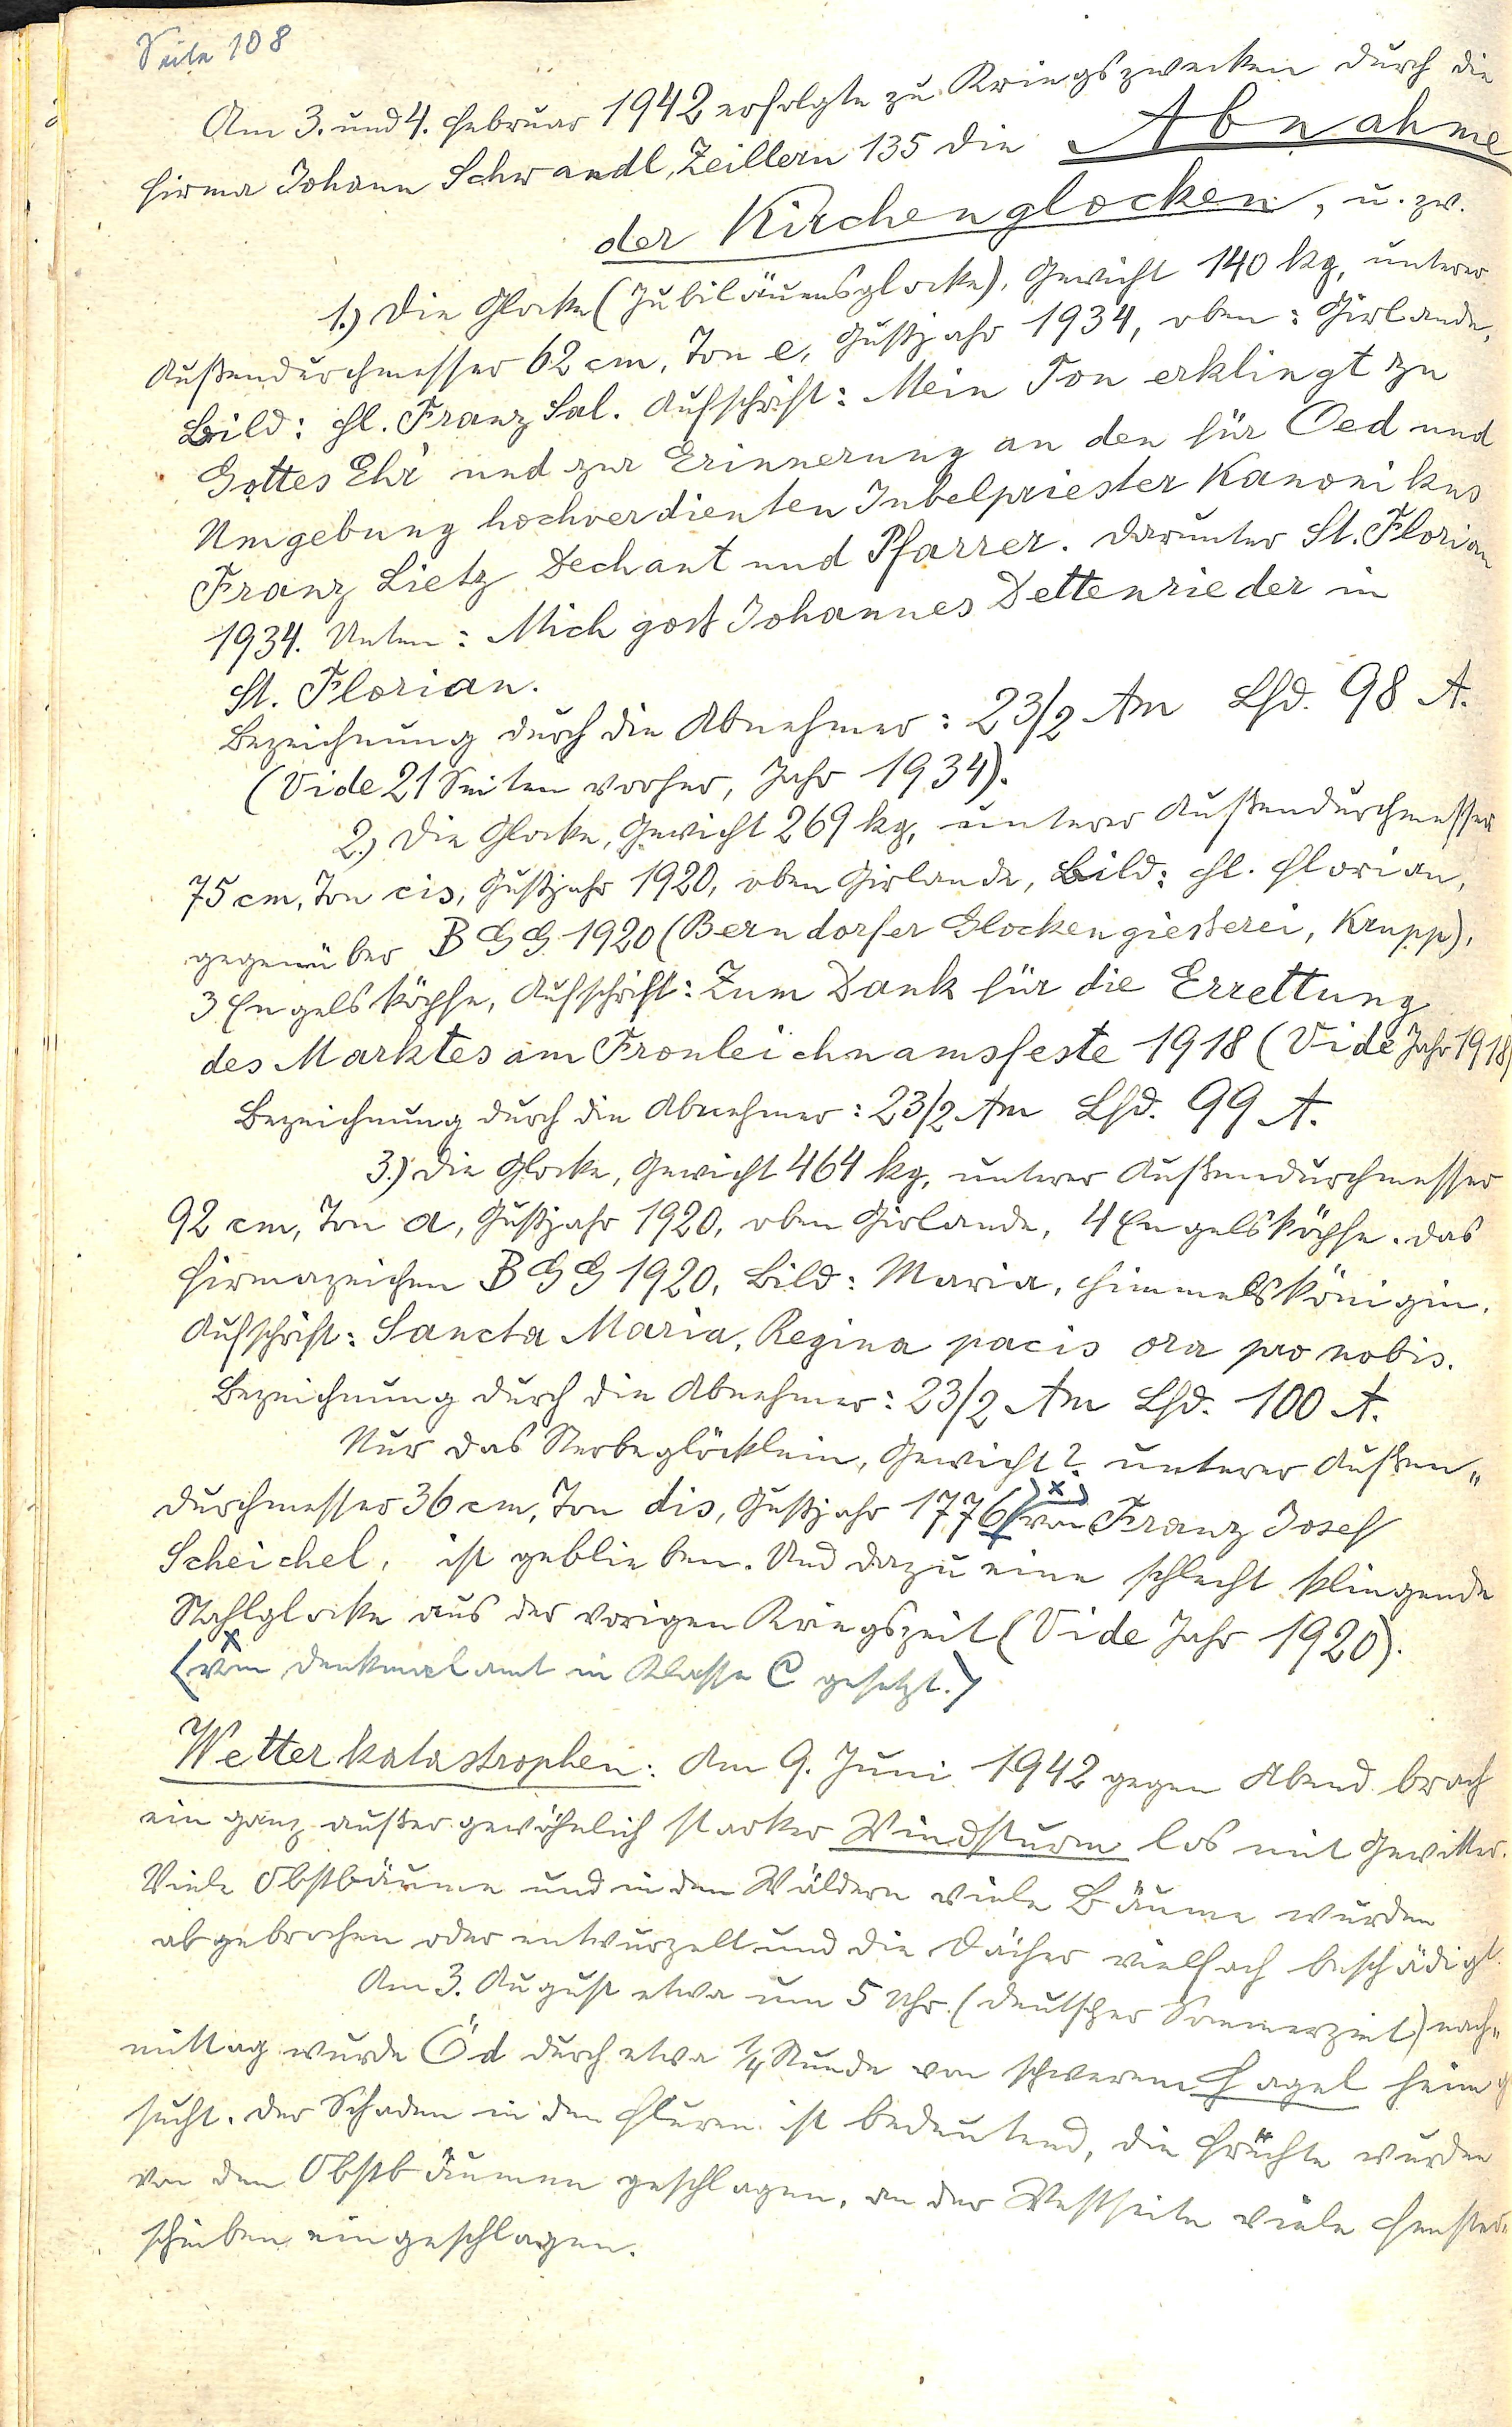 Seite 108
Am 3. und 4. Februar 1942 erfolgte zu Kriegszwecken durch die
Firma Johann Schwandl, Zeillern 135 die Abnahme
der Kirchenglocken, u. zw.
1.) Die Glocke (Jubiläumsglocke), Gewicht 140 kg, unterer
Außendurchmesser 62 cm, Ton e, Gußjahr 1934, oben: Girlande,
Bild: Hl. Franz Sal. Aufschrift: Mein Ton erklingt zu
Gottes Ehr' und zur Erinnerung an den für Oed und
Umgebung hochverdienten Jubelpriester Kanonikus
Franz Lietz Dechant und Pfarrer. Darunter St. Florian
1934. Unten: Mich goß Johannes Dettenrieder in
St. Florian.
Bezeichnung durch die Abnehmer: 23/2 Am Lfd. 98 A.
(Vide 21 Seiten vorher, Jahr 1934).
2.) Die Glocke, Gewicht 269 kg, unterer Außendurchmesser
75 cm, Ton cis, Gußjahr 1920, oben Girlande, Bild: Hl. Florian,
gegenüber B G G 1920 (Berndorfer Glockengießerei, Krupp),
3 Engelsköpfe, Aufschrift: Zum Dank für die Errettung
des Marktes am Fronleichnamsfeste 1918 (Vide Jahr 1918)
Bezeichnung durch die Abnehmer: 23/2 Am Lfd. 99 A.
3.) Die Glocke, Gewicht 464 kg, unterer Außendurchmesser
92 cm, Ton a, Gußjahr 1920, oben Girlande, 4 Engelsköpfe. Das
Firmazeichen B G G 1920, Bild: Maria, Himmelskönigin.
Aufschrift: Sancta Maria, Regina pacis ora pro nobis.
Bezeichnung durch die Abnehmer: 23/2 Am Lfd. 100 A.
Nur das Sterbeglöcklein, Gewicht?, unterer Außen„
durchmesser 36 cm, Ton dis, Gußjahr 1776 (x) von Franz Josef
Scheichel, ist geblieben. Und dazu eine schlecht klingende
Stahlglocke aus der vorigen Kriegszeit (Vide Jahr 1920).
(x vom Denkmalamt in Klasse C gesetzt.)
Wetterkatastrophen: Am 9. Juni 1942 gegen Abend brach
ein ganz außergewöhnlich starker Windsturm los mit Gewitter.
Viele Obstbäume und in den Wäldern viele Bäume wurden
abgebrochen oder entwurzelt und die Dächer vielfach beschädigt.
Am 3. August etwa um 5 Uhr (deutscher Sommerzeit) nach„
mittag wurde Öd durch etwa 1/4 Stunde von schwerem Hagel heimge
sucht. Der Schaden in den Fluren ist bedeutend, die Früchte wurden
von den Obstbäumen geschlagen, an der Westseite viele Fenster„
scheiben eingeschlagen.